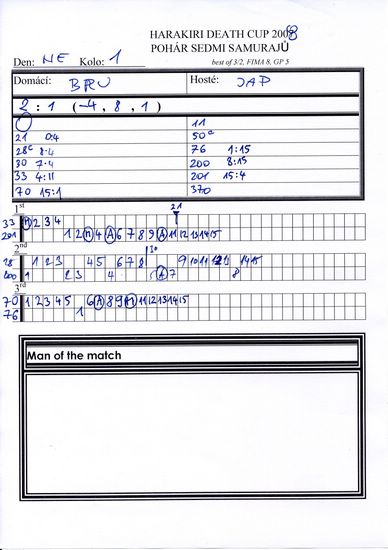 HARAKIRI DEATH CUP 2008
POHÁR SEDMI SAMURAJŮ
Den: NE Kolo: 1
best of 3/2, FIMA 8, GP 5
Domácí: BRU Hosté: JAP
2 : 1 (-4, 8, 1)
11
21 0:4 50c
28c 8:4 76 1:15
30 7:4 200 8:15
33 4:11 201 15:4
70 15:1 370
1st
21
33 1 2 3 4
201 1 2 4 6 7 8 9 11 12 13 14 15
2nd
30
28 1 2 3 4 5 6 7 8 9 10 11 12 14 15
200 1 2 3 4 7 8
3rd
70 1 2 3 4 5 6 8 9 11 12 13 14 15
76 1
Man of the match